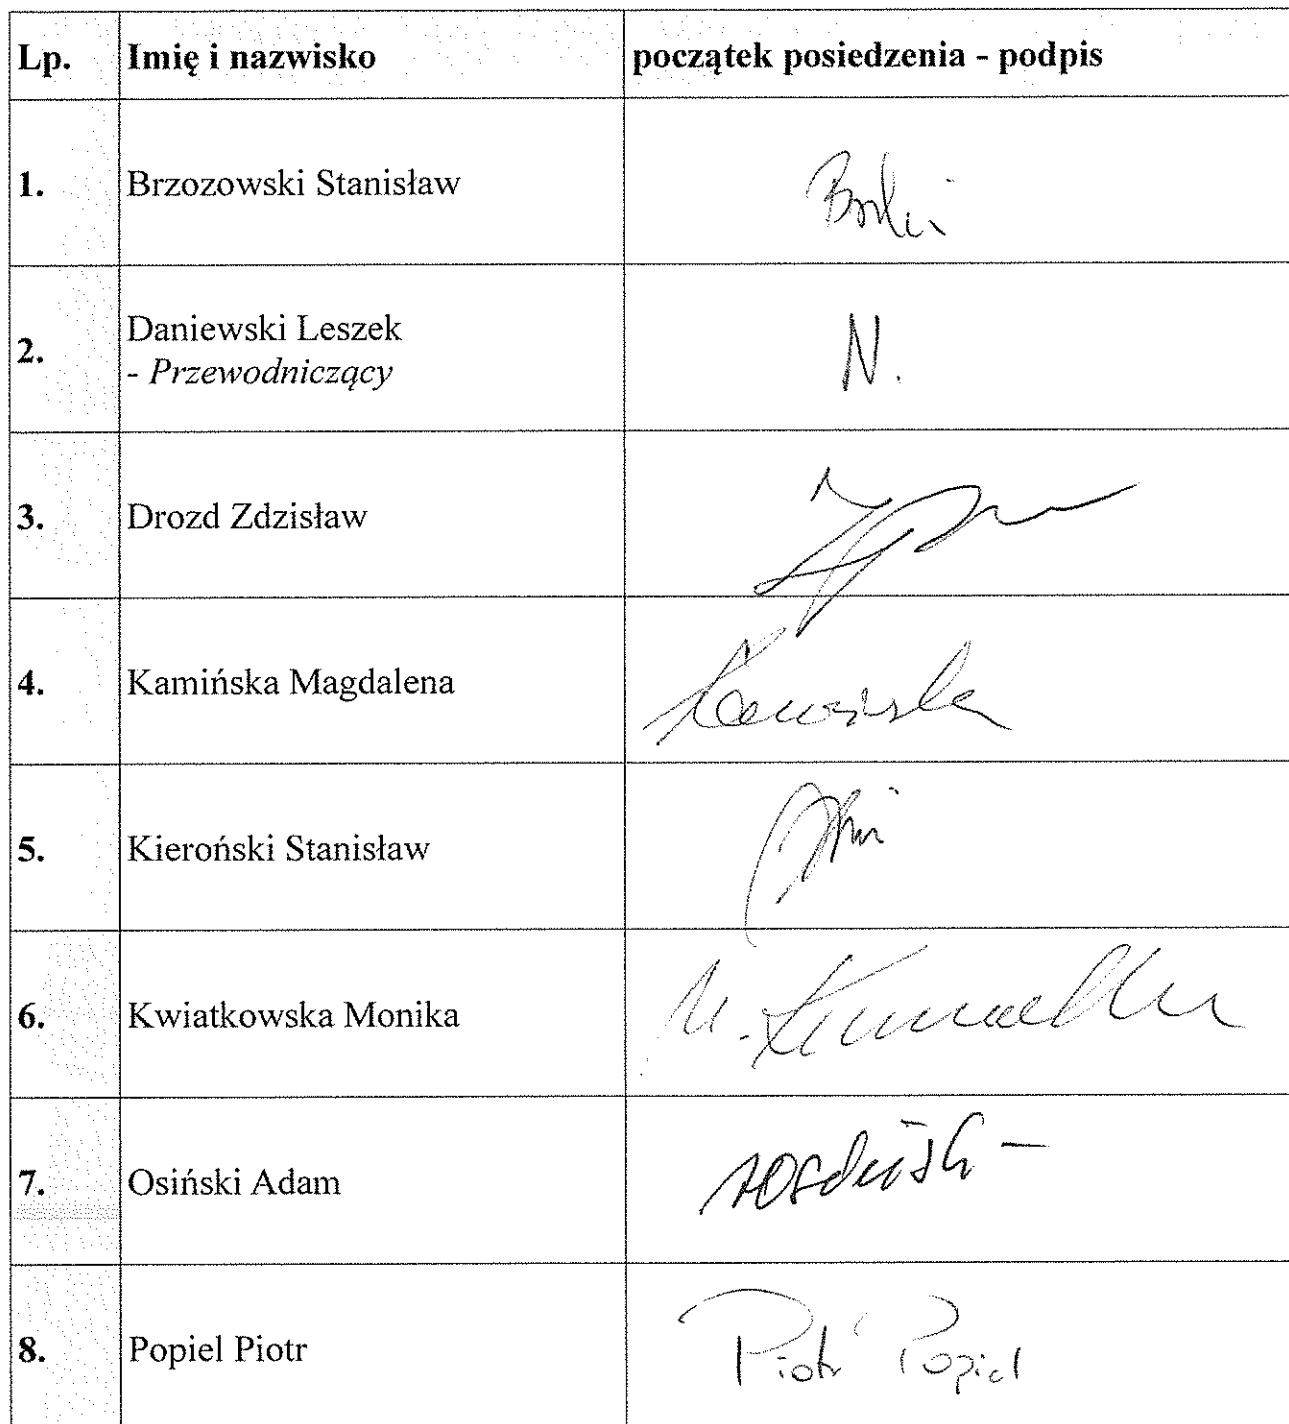 Lp. Imię i nazwisko początek posiedzenia - podpis
1. Brzozowski Stanisław
2. Daniewski Leszek
- Przewodniczący
N.
3. Drozd Zdzisław
4. Kamińska Magdalena Kamińska
5. Kieroński Stanisław
6. Kwiatkowska Monika
7. Osiński Adam
8. Popiel Piotr Piotr Popiel